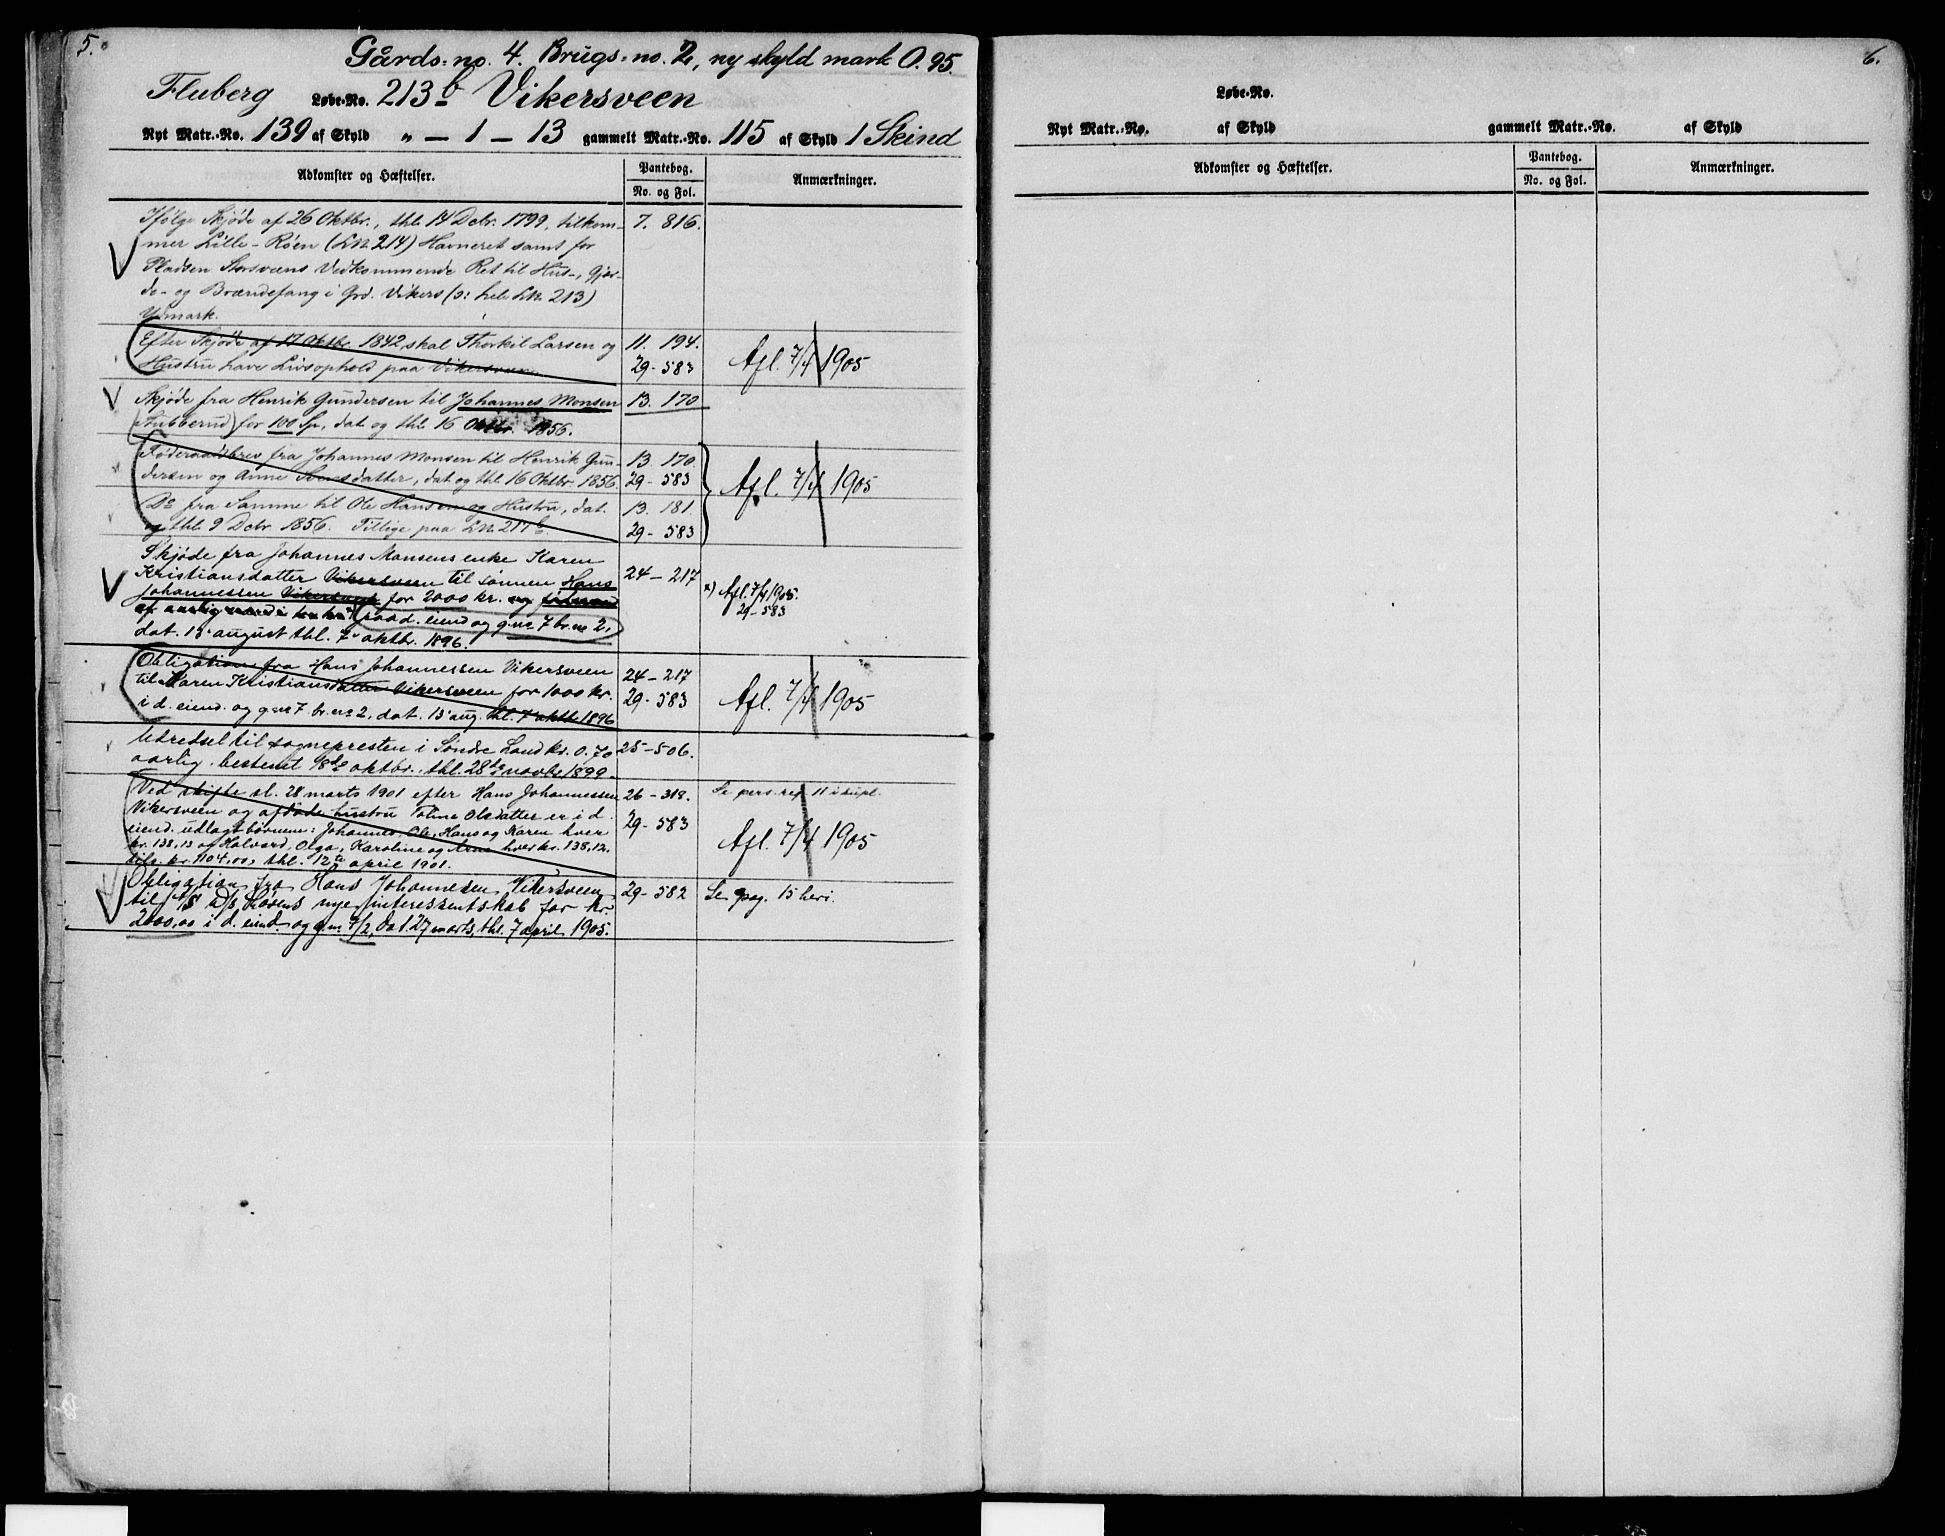 5.
Gårds-no. 4. Brugs-no. 2, ny skyld mark 0.95.
Fluberg Løbe-No. 213b Vikersveen
Nyt Matr.-No. 139 af Skyld " – 1 – 13 gammelt Matr.-No. 115 af Skyld 1 Skind
Adkomster og Hæftelser. Pantebog. No. og Fol. Anmærkninger.
Ifølge Skjøde af 26 Oktbr., thl. 14 Debr. 1799, tilkom- 7. 816.
mer Lille-Røen (LN. 214) Havneret samt for
Pladsen Storsveens Vedkommende Ret til Hus-, Gjær-
de- og Brændefang i Grd. Vikers (o: hele LN. 213)
Udmark.
Efter Skjøde af 17 Oktbr. 1842 skal Thorkil Larsen og 11. 194.
Hustru have Livsophold paa Vikersveen. 29- 583 Afl. 7/4 1905
Skjøde fra Henrik Gundersen til Johannes Monsen 13. 170
(Stubberud) for 100 Sp., dat. og thl. 16 Oktbr. 1856.
Føderaadsbrev fra Johannes Monsen til Henrik Gun- 13. 170.
dersen og Anne datter, dat. og thl. 16 Oktbr. 1856. 29- 583 Afl. 7/4 1905
Do fra Samme til Ole Hansen og Hustru, dat. 13. 181.
og thl. 9 Debr. 1856. Tillige paa LN. 217b. 29- 583
Skjøde fra Johannes Monsens enke Karen
Kristiansdatter Vikersveen til sønnen Hans 24 – 217 x) Afl. 7/4 1905.
Johannessen Vikersveen for 2000 kr. og 29-583
af aarlig værdi paa d. eiend og g.no 7 br.no 2,
dat. 15 august thl. 7 oktbr. 1896.
Obligation fra Hans Johannessen Vikersveen 24 – 217
til Karen Kristiansdatter Vikersveen for 1000 kr. 29- 583 Afl. 7/4 1905
i d. eiend. og g.no 7 br.no 2, dat. 15 aug. thl. 7 oktb. 1896
Udredsel til sognepresten i Søndre Land kr. 0.70 25–506.
aarlig. bestemt 18de oktbr., thl. 28de novbr 1899.
Ved skifte sl. 28 marts 1901 efter Hans Johannessen 26 – 318. Se pers. reg. 11 i supl.
Vikersveen og afdøde hustru Toline Olsdatter er i d. 29- 583
eiend. udlagt børnene: Johannes, Ole, Hans og Karen hver
kr. 138,13 og Halvard, Olga, Karoline og Arne hver kr. 138,12. Afl. 7/4 1905
tils. kr. 1104,00, thl. 12te april 1901.
Obligation fra Hans Johannesen Vikersveen 29- 582 Se pag. 15 heri.
til nye interessentskab for kr.
2000,00 i d. eiend. og g.no 7/2, dat. 27 marts, thl. 7 april 1905.
6.
Løbe-No.
Nyt Matr.-No. af Skyld gammelt Matr.-No. af Skyld
Adkomster og Hæftelser. Pantebog. No. og Fol. Anmærkninger.